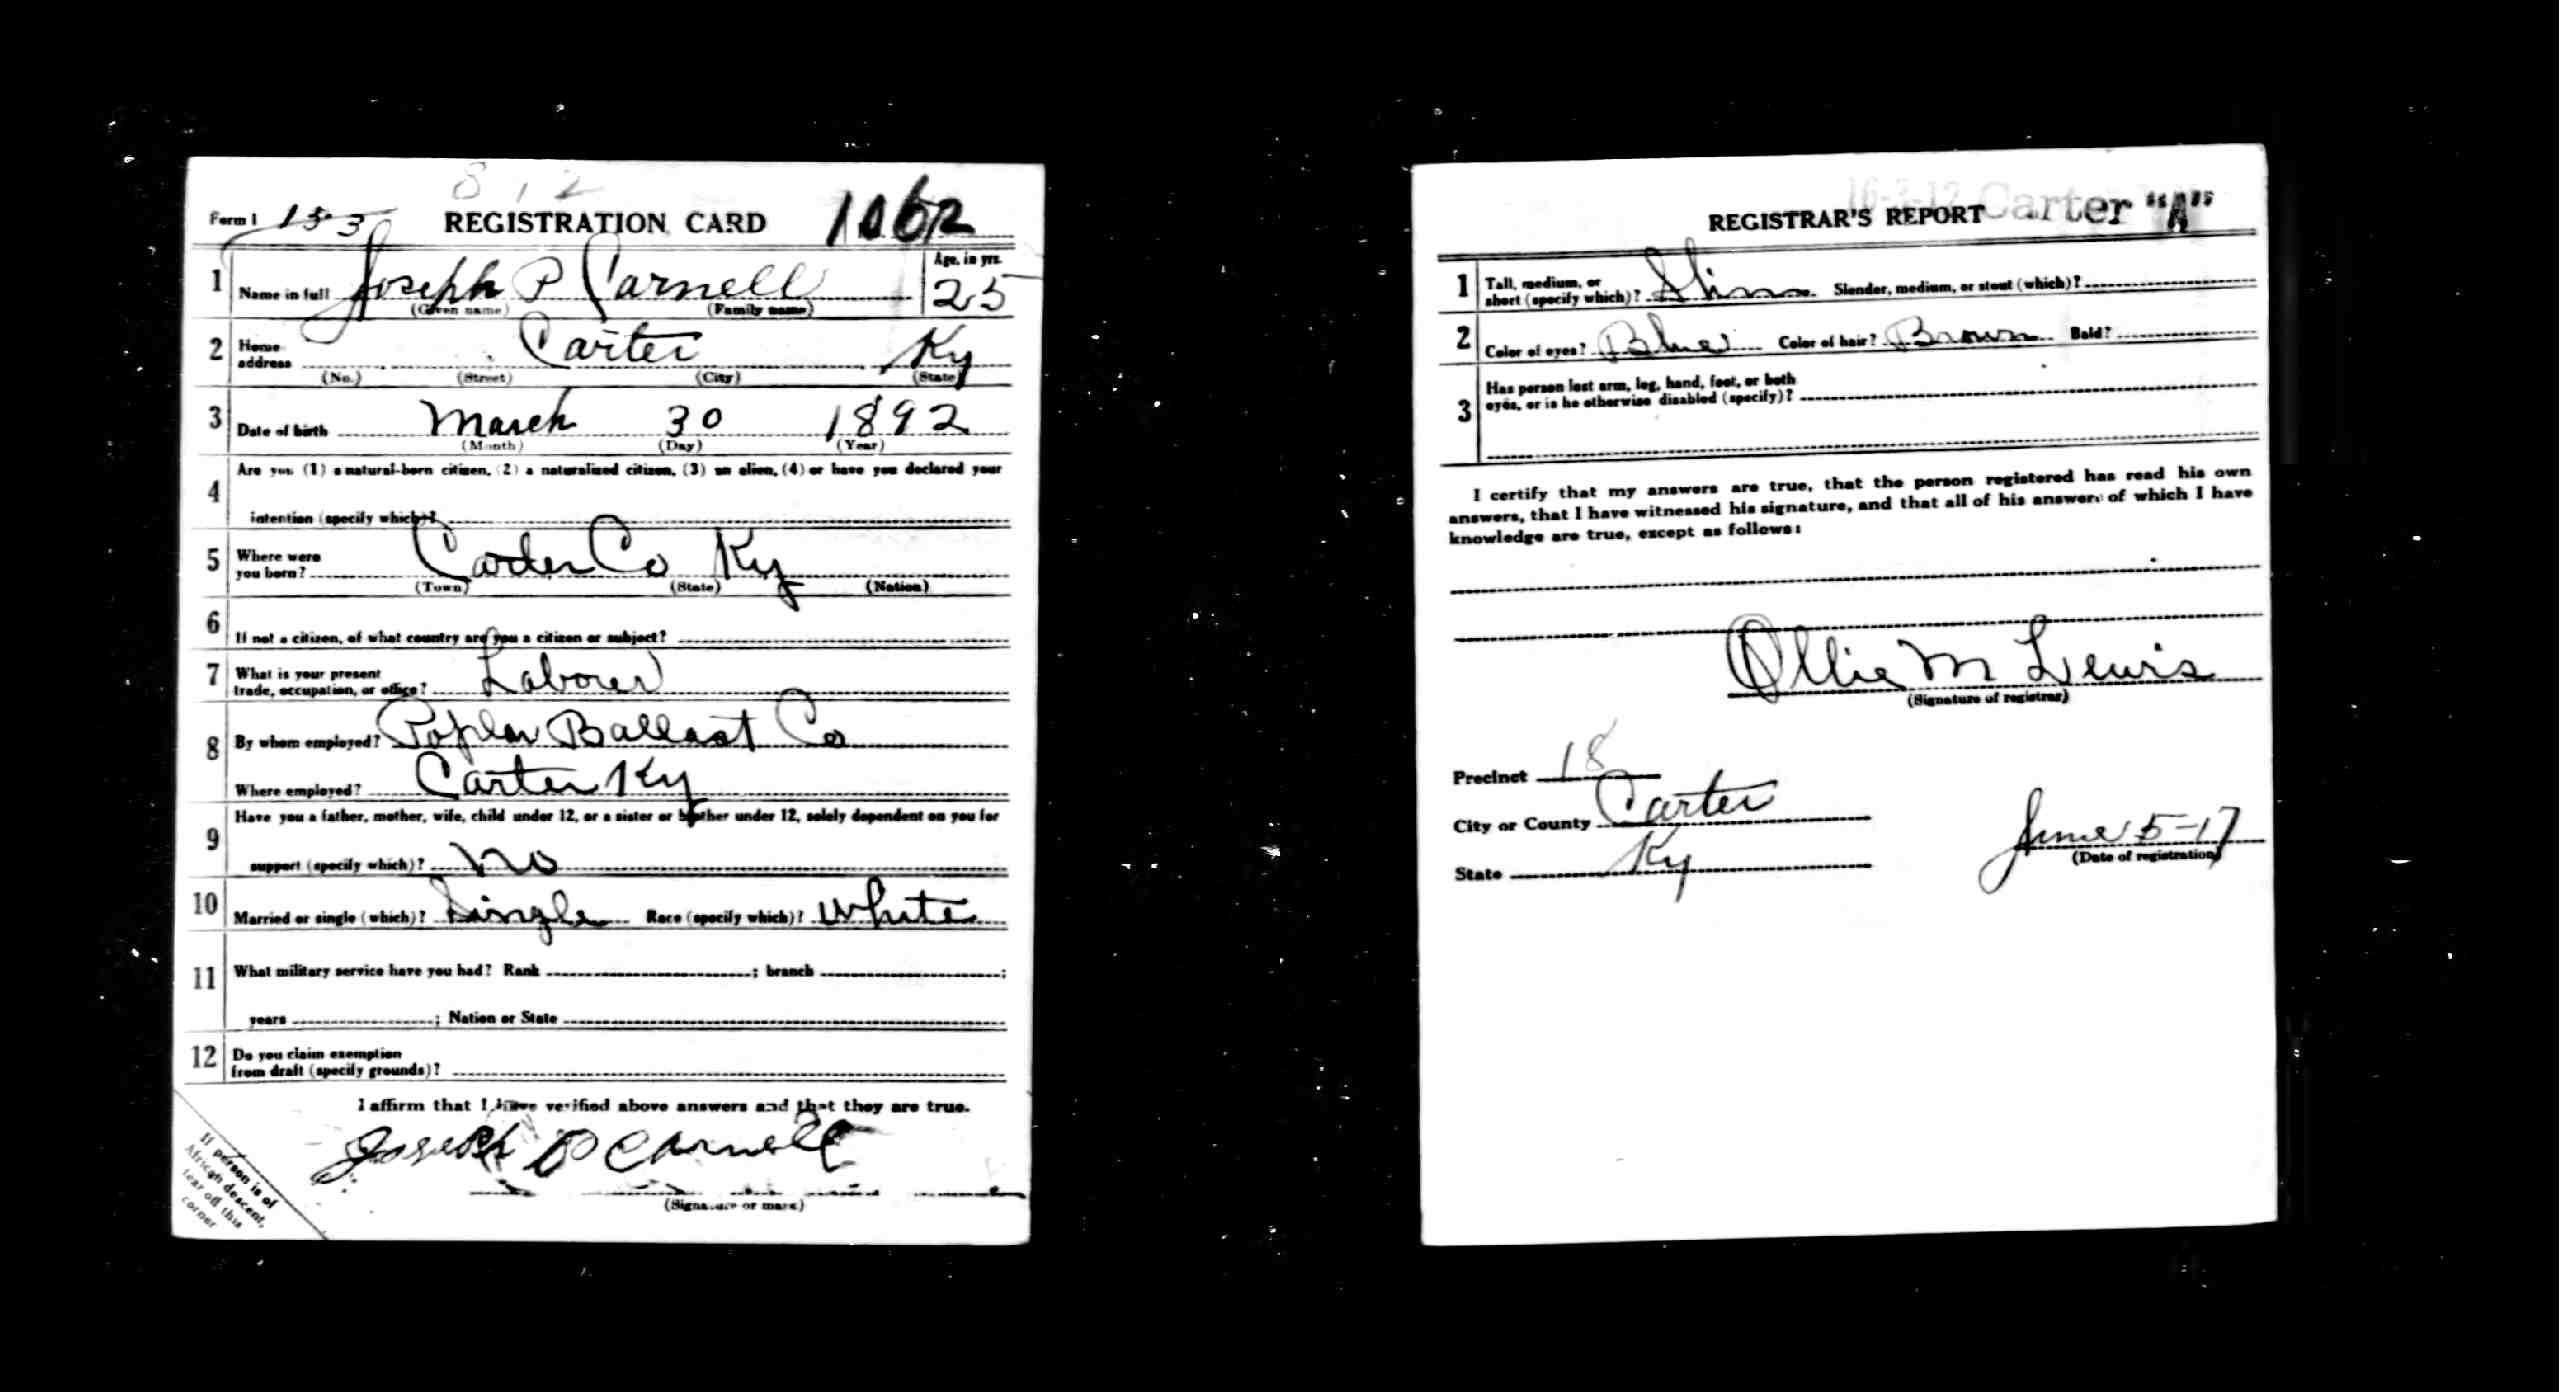 8 1 2
Form 1 153 REGISTRATION CARD 1062
1 Name in full Joseph P Carnell Age, in yrs. 25
(Given name) (Family name)
2 Home address Carter Ky
(No.) (Street) (City) (State)
3 Date of birth March 30 1892
(Month) (Day) (Year)
4 Are you (1) a natural-born citizen, (2) a naturalized citizen, (3) an alien, (4) or have you declared your
intention (specify which)?
5 Where were you born? Carter Co Ky
(Town) (State) (Nation)
6 If not a citizen, of what country are you a citizen or subject?
7 What is your present
trade, occupation, or office? Laborer
8 By whom employed? Poplar Ballast Co
Where employed? Carter Ky
9 Have you a father, mother, wife, child under 12, or a sister or brother under 12, solely dependent on you for
support (specify which)? no
10 Married or single (which)? Single Race (specify which)? White
11 What military service have you had? Rank ; branch ;
years ; Nation or State
12 Do you claim exemption
from draft (specify grounds)?
I affirm that I have verified above answers and that they are true.
Joseph P Carnell
(Signature or mark)
If person is of
African descent,
tear off this
corner
16-3-12 Carter "A"
REGISTRAR'S REPORT
1 Tall, medium, or
short (specify which)? Slim Slender, medium, or stout (which)?
2 Color of eyes? Blue Color of hair? Brown Bald?
3 Has person lost arm, leg, hand, foot, or both
eyes, or is he otherwise disabled (specify)?
I certify that my answers are true, that the person registered has read his own
answers, that I have witnessed his signature, and that all of his answers of which I have
knowledge are true, except as follows:
Ollie M Lewis
(Signature of registrar)
Precinct 18
City or County Carter
State Ky
June 5-17
(Date of registration)